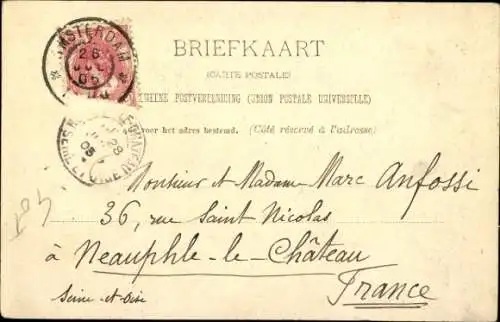 AMSTERDAM
26
05
BRIEFKAART
(CARTE POSTALE)
POSTVEREENIGING (UNION POSTALE UNIVERSELLE)
voor het adres bestemd. (Côté réservé à l'adresse)
28
05
Monsieur et Madame Marc Anfossi
36, rue Saint Nicolas
à Neauphle-le-Château
Seine-et-Oise
France